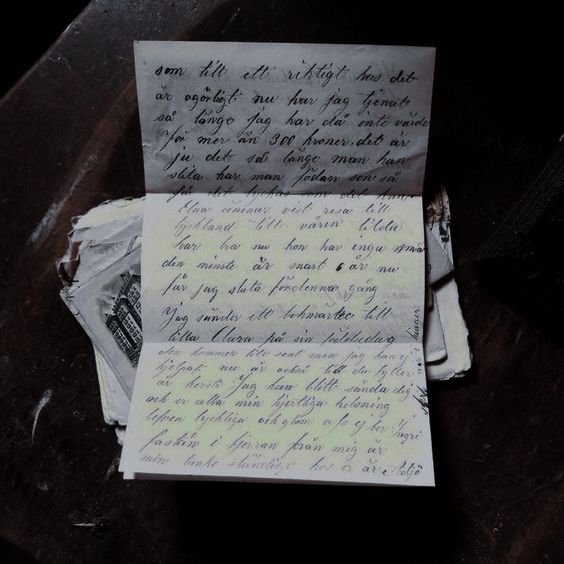 som till ett riktigt hus det
är ogörligt nu har jag tjenat
så länge jag har då inte värde
för mer än 300 kroner det är
ju det så länge man kan
slita har man födan sen så
får det lyckas som det kan.
Elna ämnar vist resa till
tyskland till våren
har bra nu hon har inga små
den minste är snart 6 år nu
får jag sluta för denna gång
Jag sänder ett bokmärke till
lilla Clara på sin födelsedag
den kommer lite sent men jag kan ej
hjelpat nu är också till du fyller
år kersti Jag kan blott sända dig
och er alla min hjertliga helsning
lefven lyckliga och glöm oss ej
fastän i fjerran från mig är
min tanke ständigt hos er är Adjö